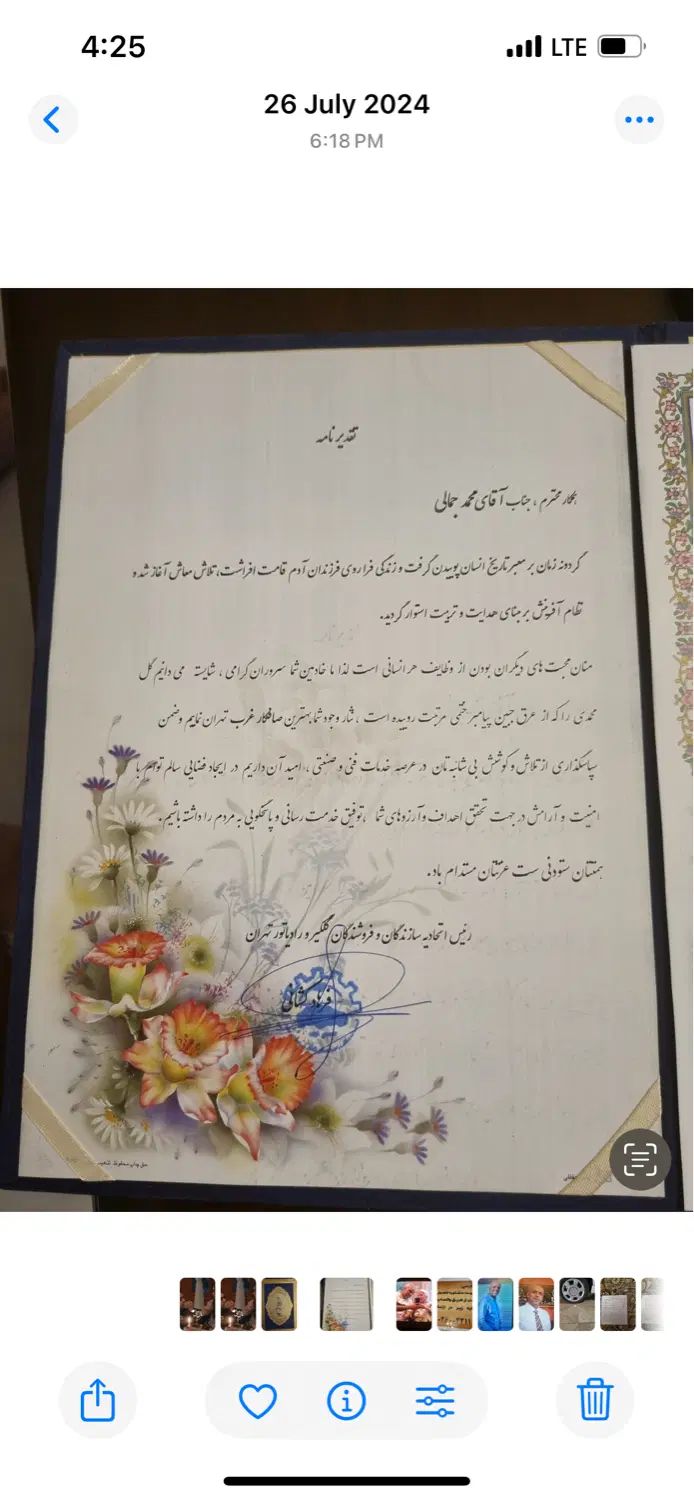 4:25
LTE
26 July 2024
6:18 PM
تقدیر نامه
همکار محترم ، جناب آقای محمد جمالی
گردونه زمان بر معبر تاریخ انسان پوییدن گرفت و زندگی فراروی فرزندان آدم قامت افراشت، تلاش معاش آغاز شد و
نظام آفرینش بر مبنای هدایت و تربیت استوار گردید.
منان محبت های دیگران بودن از وظایف هر انسانی است لذا ما خادمین شما سروران گرامی ، شایسته می دانیم گل
محمدی را که از عرق جبین پیامبر ختمی مرتبت روییده است ، نثار وجود شما بهترین صافکار غرب تهران نماییم و ضمن
سپاسگذاری از تلاش و کوشش بی شائبه تان در عرصه خدمات فنی و صنعتی ، امید آن داریم در ایجاد فضایی سالم توام با
امنیت و آرامش در جهت تحقق اهداف و آرزوهای شما ، توفیق خدمت رسانی و پاسخگویی به مردم را داشته باشیم.
همتتان ستودنی ست عزتتان مستدام باد.
رئیس اتحادیه سازندگان و فروشندگان گلگیر و رادیاتور تهران
فرهاد کشانی
حق چاپ محفوظ